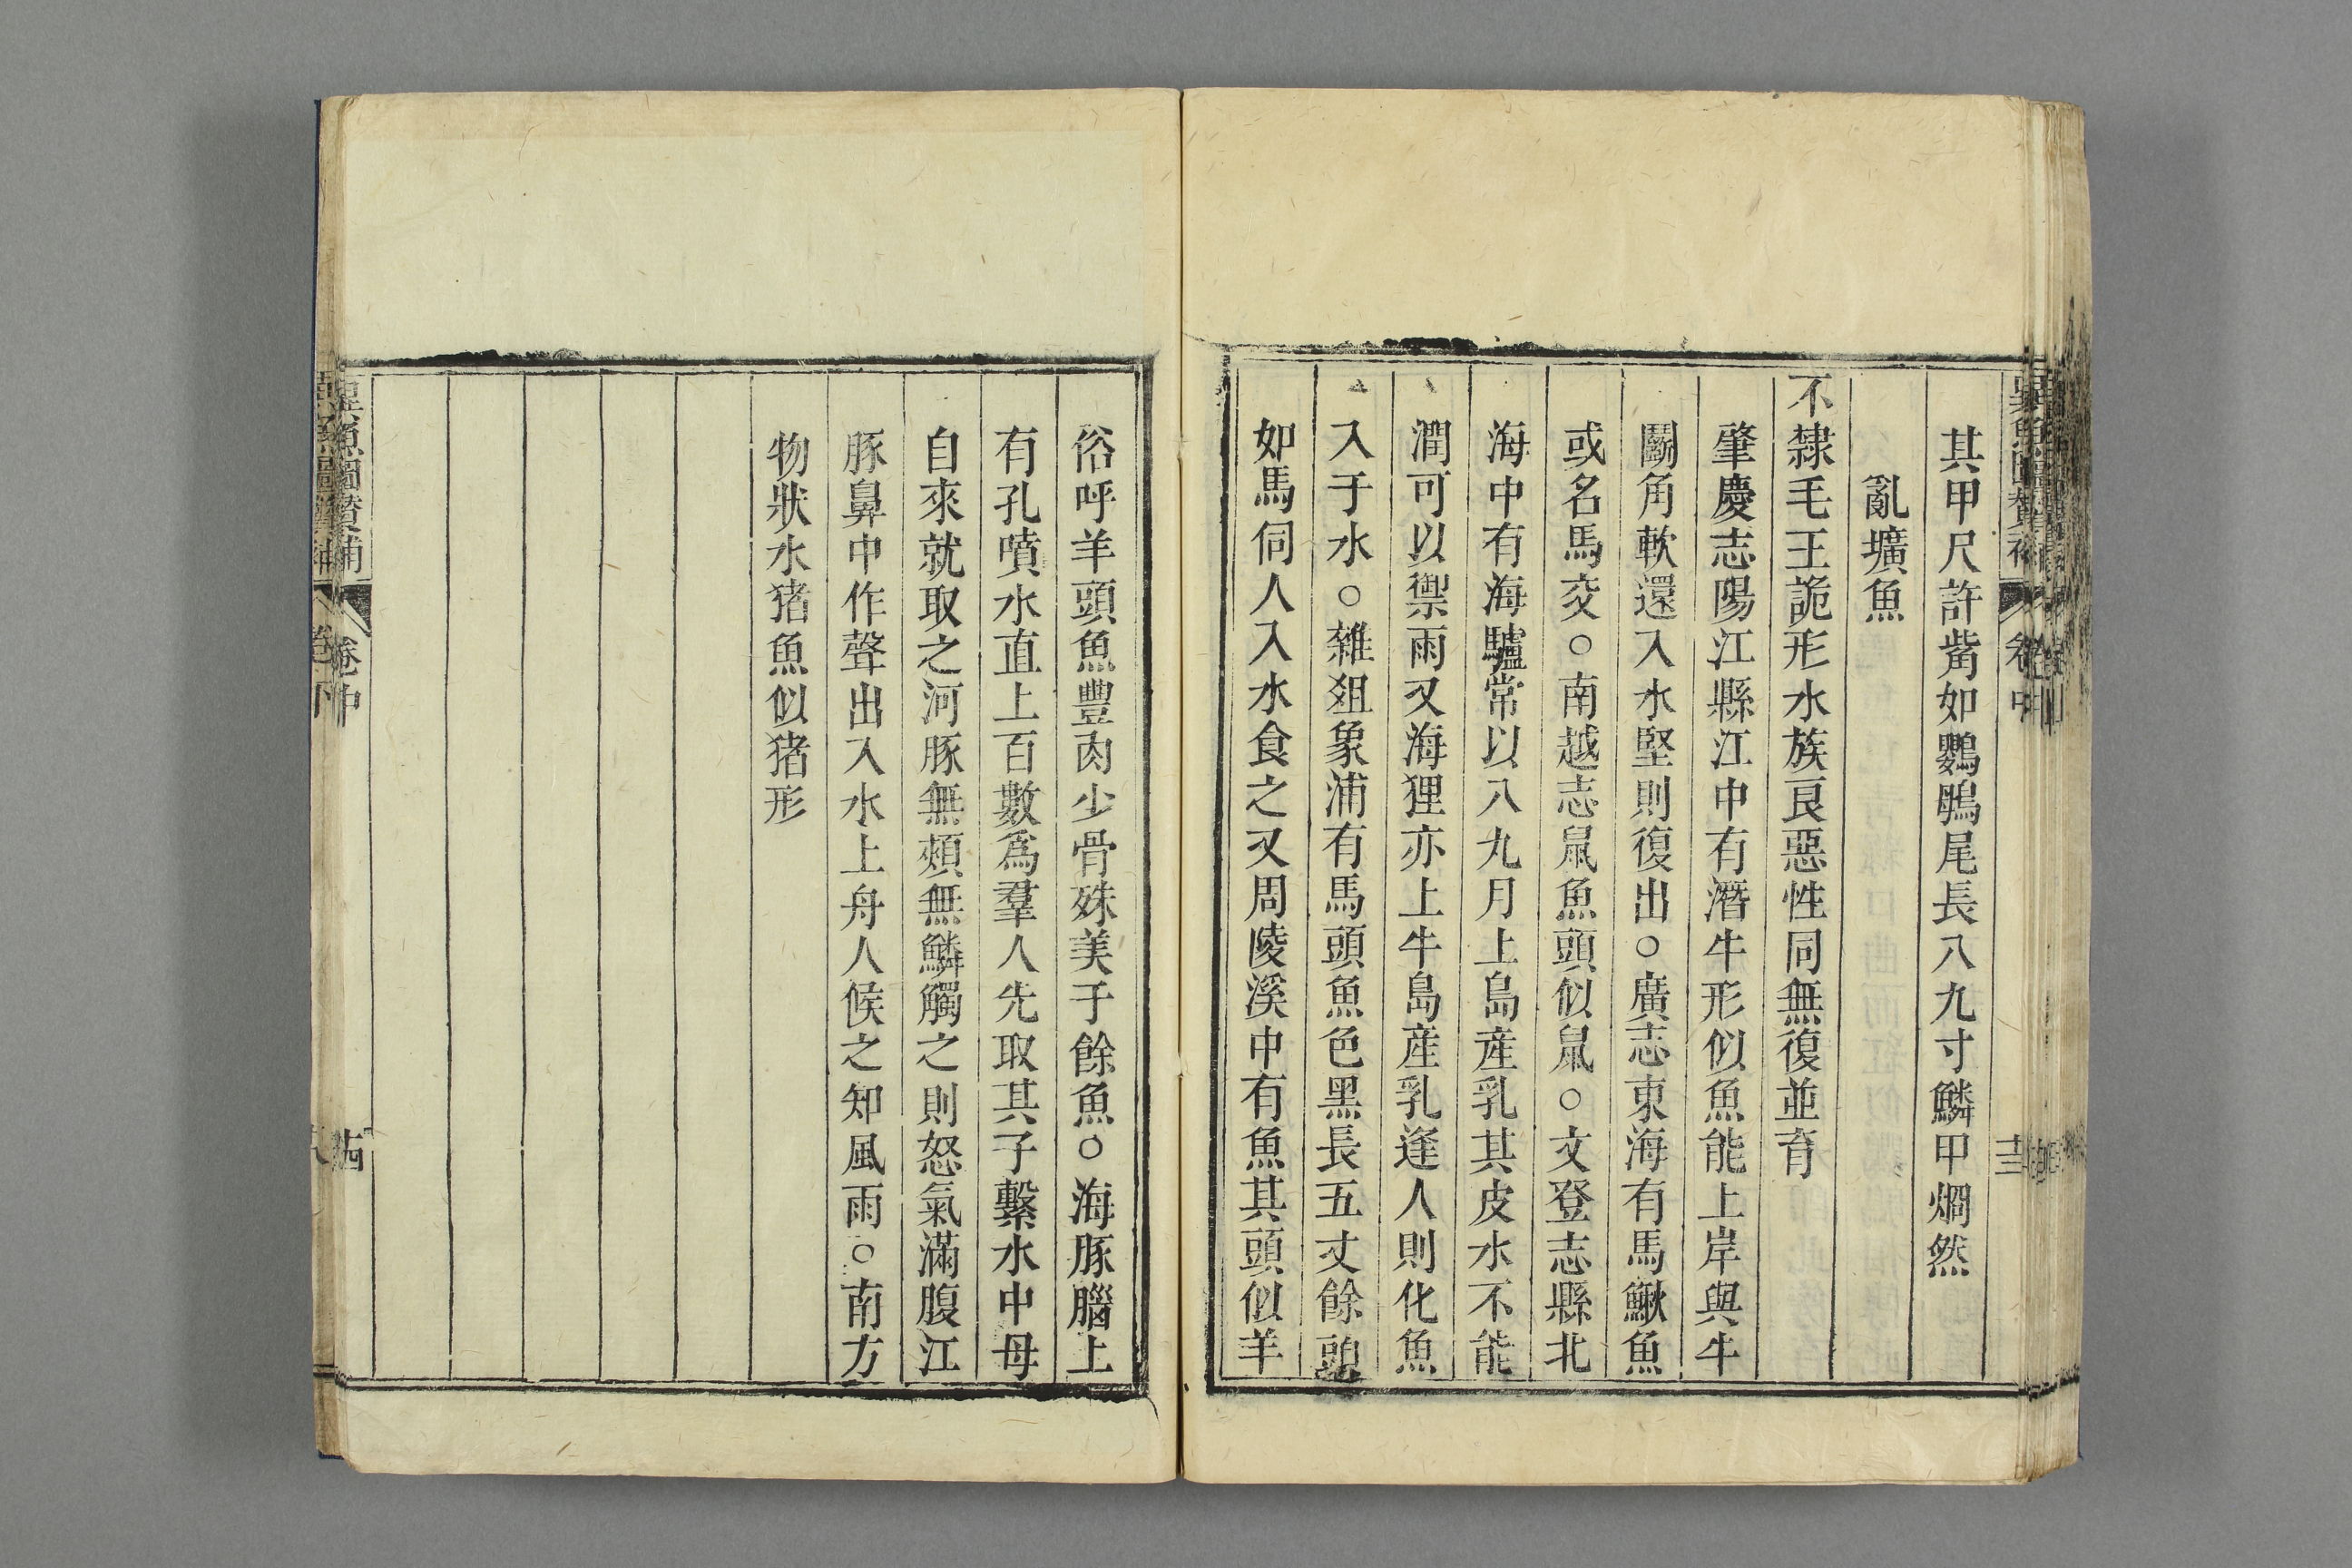 其甲尺許觜如鸚鵡尾長八九寸鱗甲燗然
亂壙魚
不隸毛王詭形水族良惡性同無復並育
肇慶志陽江縣江中有潛牛形似魚能上岸與牛
鬭角軟還入水堅則復出○廣志東海有馬鰍魚
或名馬交○南越志鼠魚頭似鼠○文登志縣北
海中有海驢常以八九月上島産乳其皮水不能
潤可以禦雨又海狸亦上牛島産乳逢人則化魚
入于水○雜爼象浦有馬頭魚色黑長五丈餘頭
如馬伺人入水食之又周陵溪中有魚其頭似羊
俗呼羊頭魚豐肉少骨殊美于餘魚○海豚腦上
有孔噴水直上百數爲羣人先取其子繫水中母
自來就取之河豚無頰無鱗觸之則怒氣滿腹江
豚鼻中作聲出入水上舟人候之知風雨○南方
物狀水猪魚似猪形
異魚圖贊補
卷中
十三
異魚圖贊補
卷中
十四